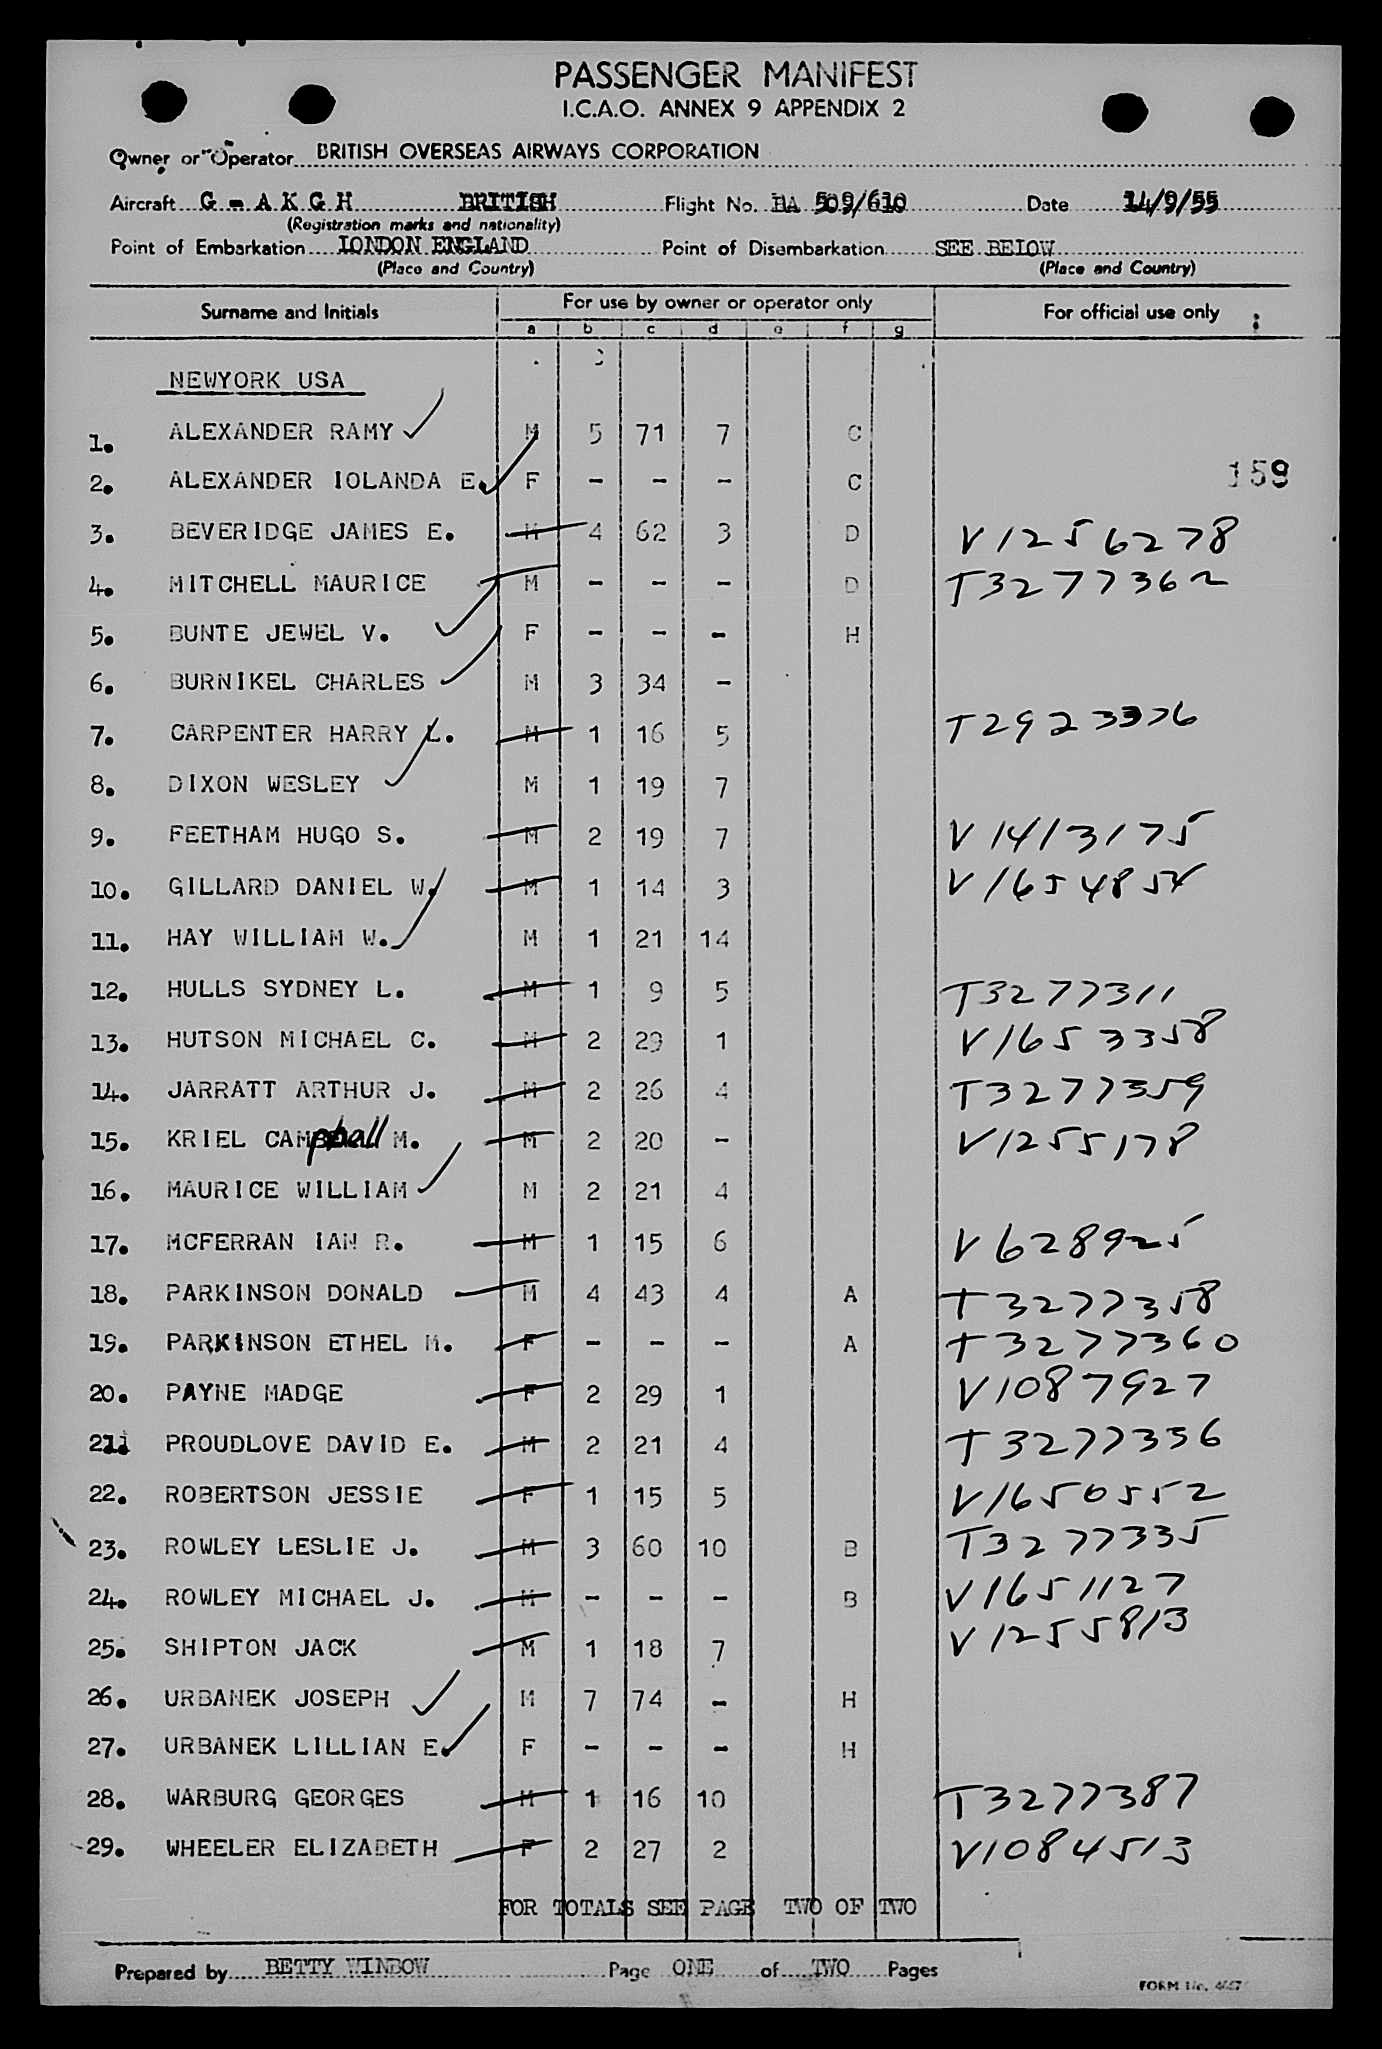 PASSENGER MANIFEST
I.C.A.O. ANNEX 9 APPENDIX 2
Owner or Operator BRITISH OVERSEAS AIRWAYS CORPORATION
Aircraft G - A K G H BRITISH Flight No. BA 509/610 Date 14/9/55
(Registration marks and nationality)
Point of Embarkation LONDON ENGLAND Point of Disembarkation SEE BELOW
(Place and Country) (Place and Country)
Surname and Initials For use by owner or operator only For official use only
a b c d e f g
NEWYORK USA
1. ALEXANDER RAMY M 5 71 7 C
2. ALEXANDER IOLANDA E. F - - - C 159
3. BEVERIDGE JAMES E. M 4 62 3 D V1256278
4. MITCHELL MAURICE M - - - D T3277362
5. BUNTE JEWEL V. F - - - H
6. BURNIKEL CHARLES M 3 34 -
7. CARPENTER HARRY L. M 1 16 5 T2923376
8. DIXON WESLEY M 1 19 7
9. FEETHAM HUGO S. M 2 19 7 V1413175
10. GILLARD DANIEL W. M 1 14 3 V1654854
11. HAY WILLIAM W. M 1 21 14
12. HULLS SYDNEY L. M 1 9 5 T3277311
13. HUTSON MICHAEL C. M 2 29 1 V1653358
14. JARRATT ARTHUR J. M 2 26 4 T3277359
15. KRIEL CAMpball M. M 2 20 - V1255178
16. MAURICE WILLIAM M 2 21 4
17. MCFERRAN IAN R. M 1 15 6 V628925
18. PARKINSON DONALD M 4 43 4 A T3277358
19. PARKINSON ETHEL M. F - - - A T3277360
20. PAYNE MADGE F 2 29 1 V1087927
21. PROUDLOVE DAVID E. M 2 21 4 T3277356
22. ROBERTSON JESSIE F 1 15 5 V1650552
23. ROWLEY LESLIE J. M 3 60 10 B T3277335
24. ROWLEY MICHAEL J. M - - - B V1651127
25. SHIPTON JACK M 1 18 7 V1255813
26. URBANEK JOSEPH M 7 74 - H
27. URBANEK LILLIAN E. F - - - H
28. WARBURG GEORGES M 1 16 10 T3277387
29. WHEELER ELIZABETH F 2 27 2 V1084513
FOR TOTALS SEE PAGE TWO OF TWO
Prepared by BETTY WINBOW Page ONE of TWO Pages
FORM No.